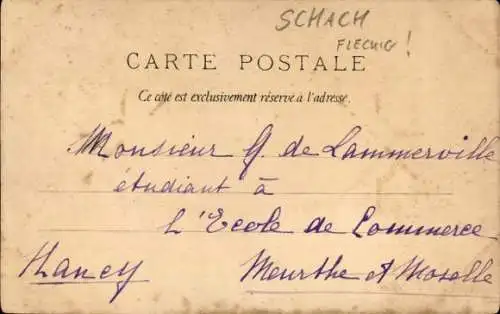 SCHACH
FLECKIG!
CARTE POSTALE
Ce côté est exclusivement réservé à l'adresse.
Monsieur G. de Lammerville
étudiant à
L'Ecole de Commerce
Nancy Meurthe et Moselle